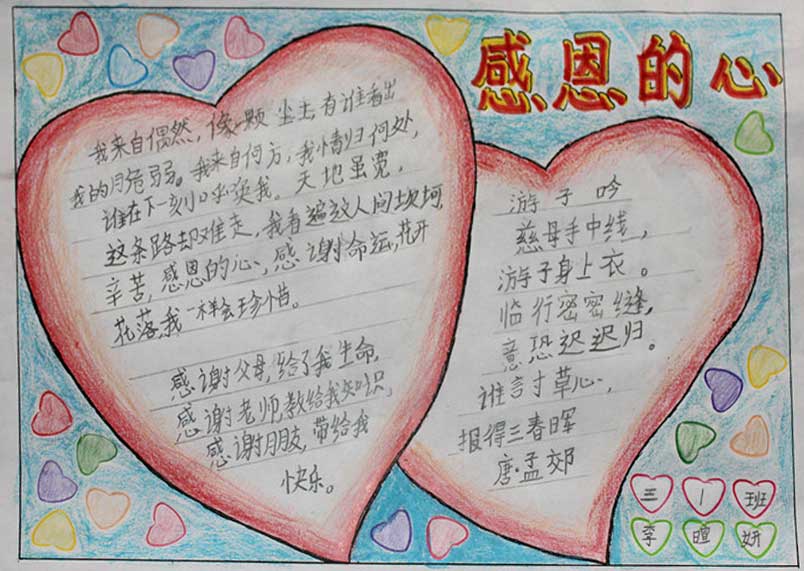 感恩的心
我来自偶然,像一颗尘土,有谁看出
我的脆弱。我来自何方,我情归何处,
谁在下一刻呼唤我。天地虽宽,
这条路却难走,我看遍这人间坎坷
辛苦,感恩的心,感谢命运,花开
花落,我一样会珍惜。
感谢父母,给了我生命,
感谢老师教给我知识,
感谢朋友,带给我
快乐。
游子吟
慈母手中线,
游子身上衣。
临行密密缝,
意恐迟迟归。
谁言寸草心,
报得三春晖
唐·孟郊
三1班
李暄妍